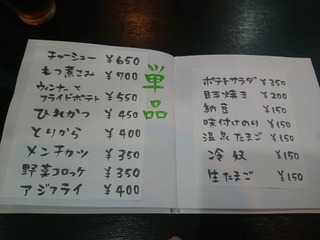 単品
チャーシュー ¥650
もつ煮こみ ¥700
ウィンナーと
フライドポテト ¥550
ひれかつ ¥450
とりから ¥400
メンチカツ ¥350
野菜コロッケ ¥350
アジフライ ¥400
ポテトサラダ ¥350
目玉焼き ¥200
納豆 ¥150
味付けのり ¥150
温泉たまご ¥150
冷奴 ¥150
生たまご ¥150